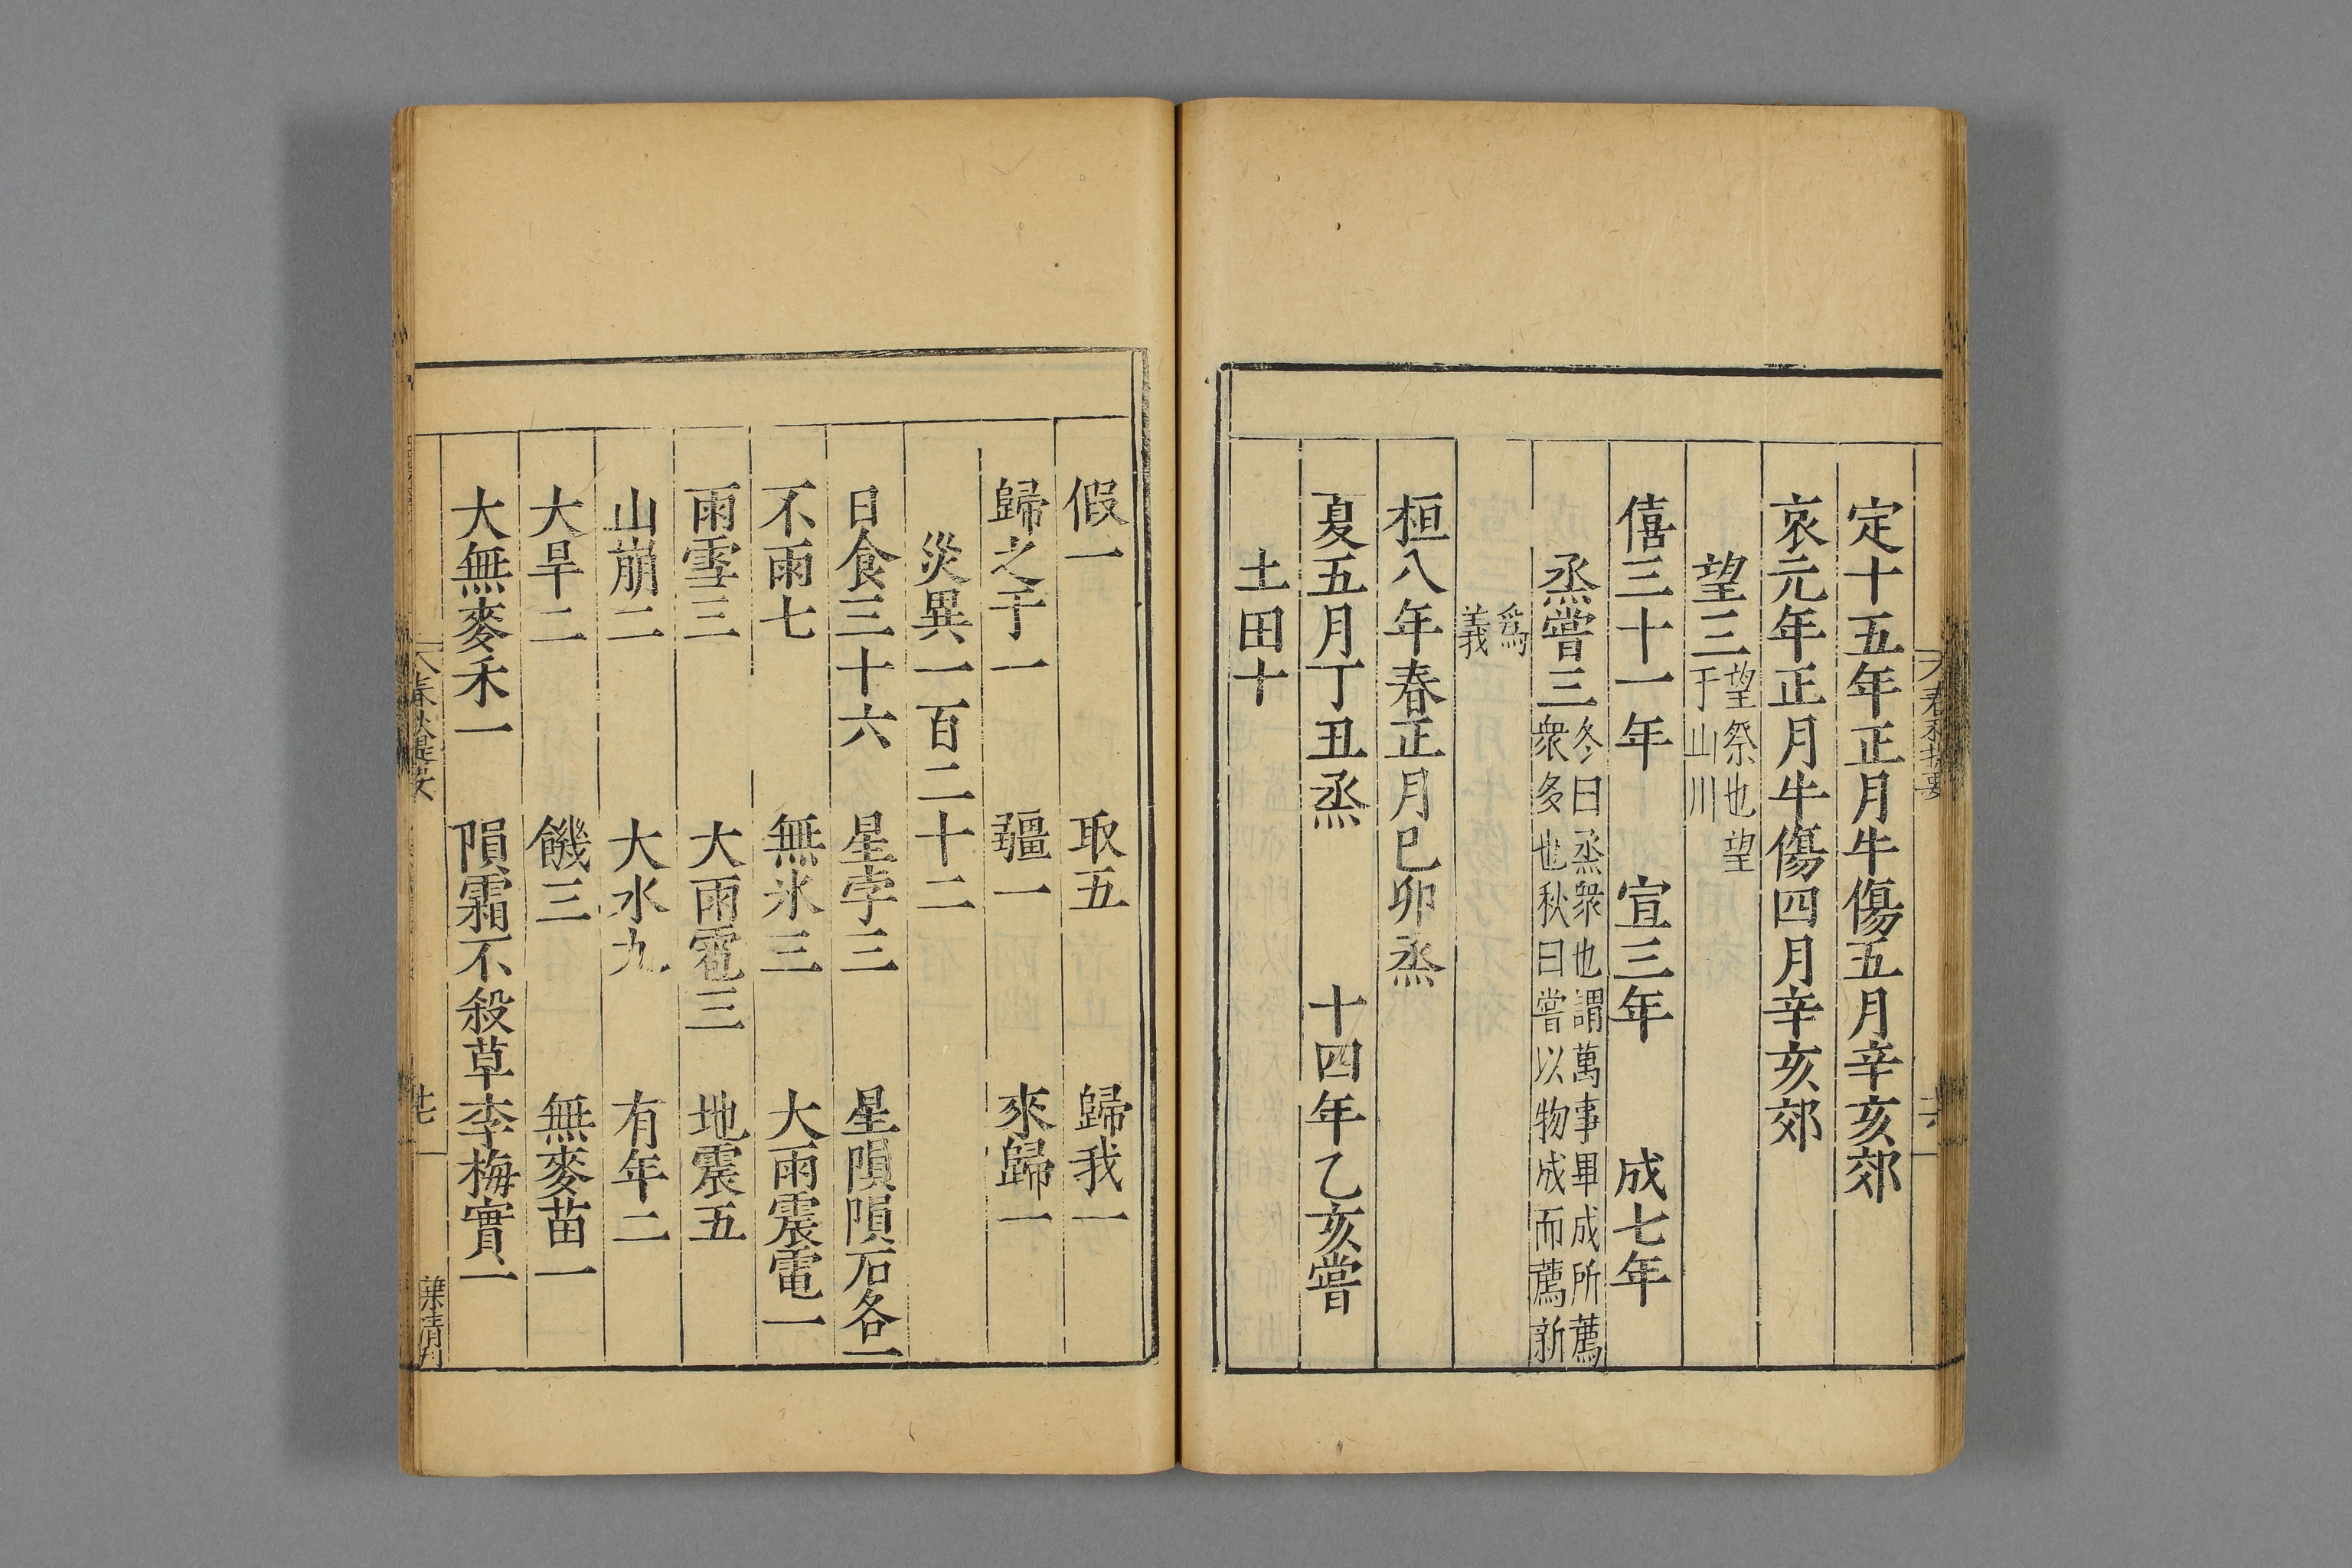 定十五年正月牛傷五月辛亥郊
哀元年正月牛傷四月辛亥郊
望三望祭也望于山川
僖三十一年 宣三年 成七年
烝嘗三冬曰烝衆也謂萬事畢成所薦衆多也秋曰嘗以物成而薦新
爲義
桓八年春正月巳卯烝
夏五月丁丑烝 十四年乙亥嘗
土田十
假一 取五 歸我一
歸之于一 疆一 來歸一
災異一百二十二
日食三十六 星孛三 星隕隕石各一
不雨七 無氷三 大雨震電一
雨雪三 大雨雹三 地震五
山崩二 大水九 有年二
大旱二 饑三 無麥苗一
大無麥禾一 隕霜不殺草李梅實一
春秋提要